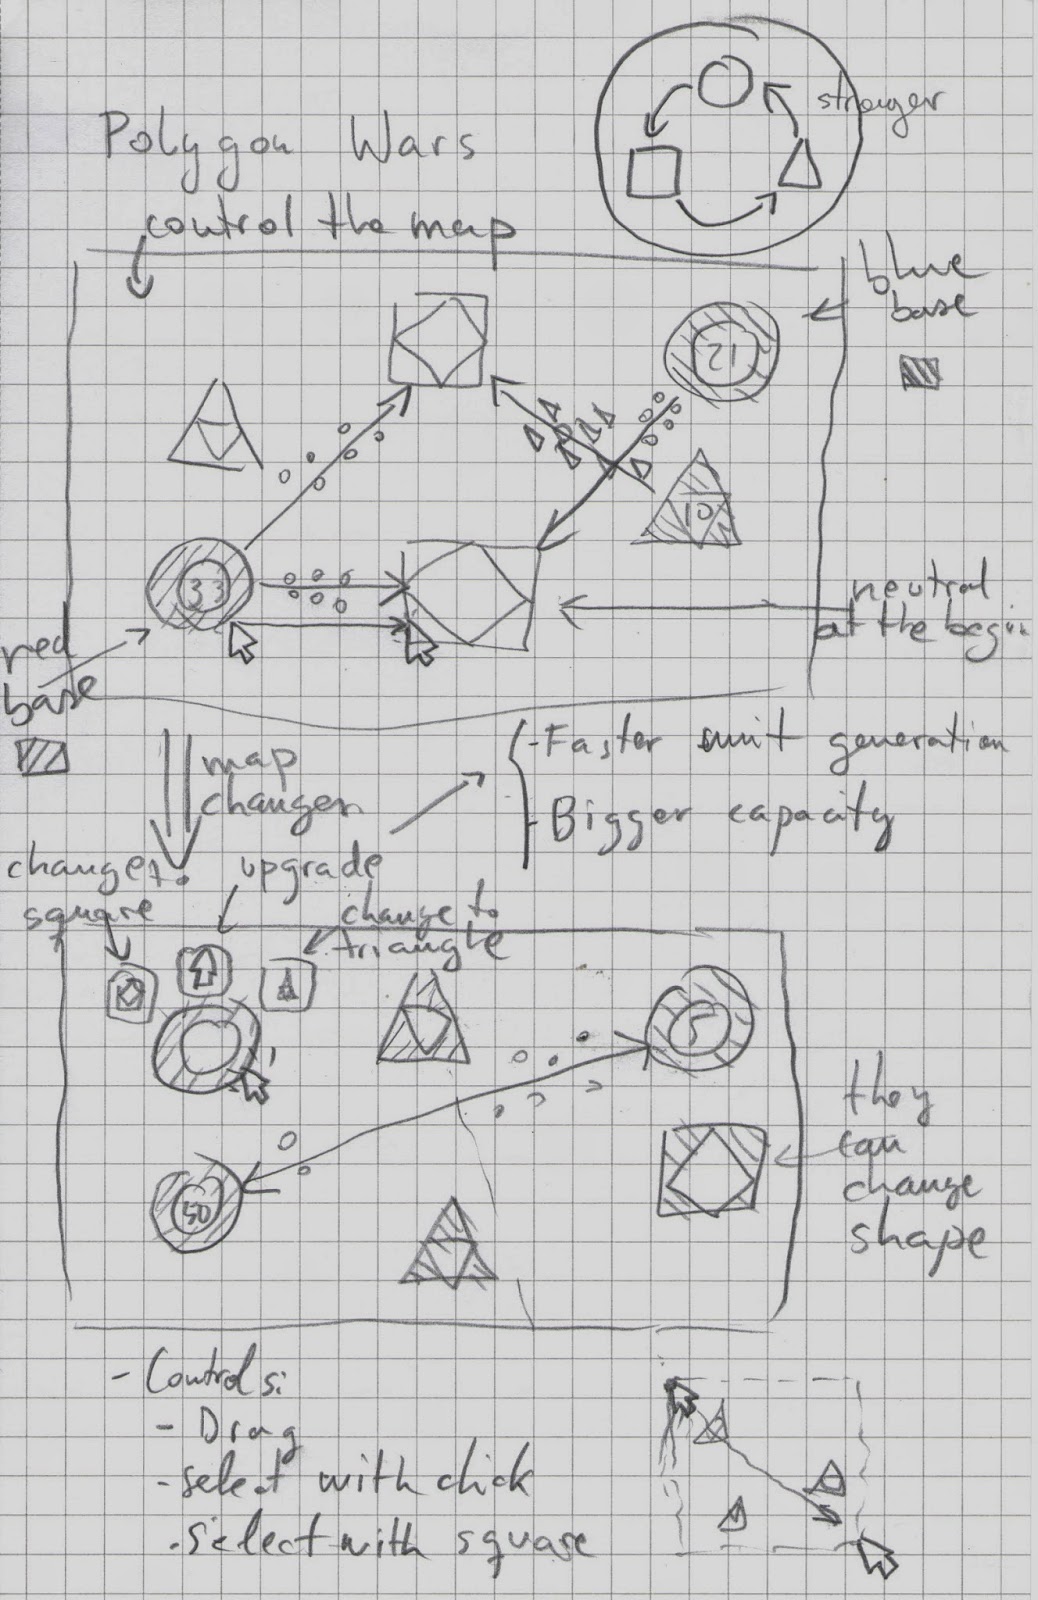 Polygon Wars
stronger
control the map
blue
base
21
10
33
neutral
at the begin
red
base
- Faster unit generation
- Bigger capacity
map
changes
change t.
square
upgrade
change to
triangle
5
50
they
can
change
shape
- Controls:
- Drag
- select with click
- select with square